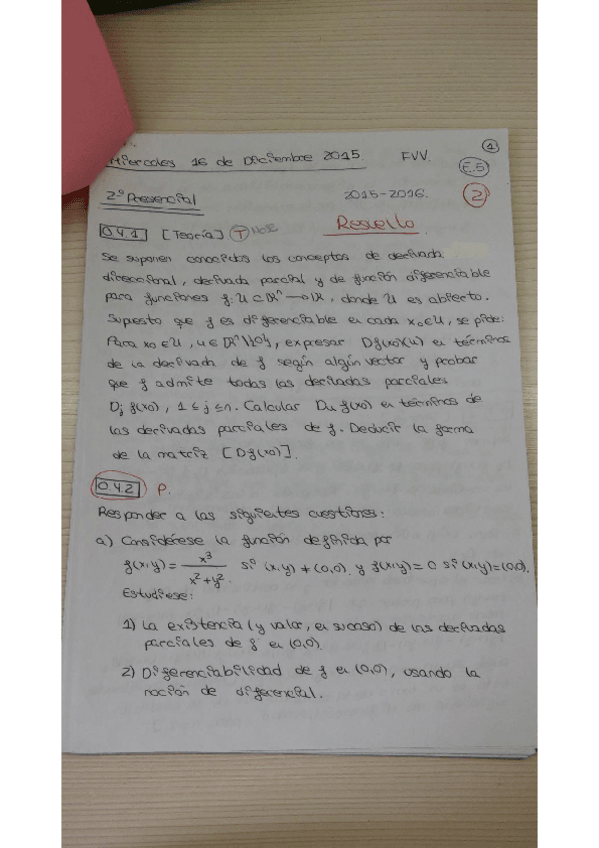 ①
Miercoles 16 de Diciembre 2015. FVV.
E.5
2º Presencial 2015-2016. ②
Resuelto
04.1 [Teoría] T
Se suponen conocidos los conceptos de derivada
direccional, derivada parcial y de función diferenciable
para funciones f: U ⊂ ℝⁿ → ℝ, donde U es abierto.
Supuesto que f es diferenciable en cada x₀∈U, se pide:
Para x₀∈U, u∈ℝⁿ\{0}, expresar Df(x₀)(u) en términos
de la derivada de f según algún vector y probar
que f admite todas las derivadas parciales
Dj f(x₀), 1 ≤ j ≤ n. Calcular Du f(x₀) en términos de
las derivadas parciales de f. Deducir la forma
de la matriz [Df(x₀)].
04.2 P.
Responder a las siguientes cuestiones:
a) Considérese la función definida por
f(x,y) = x³/(x²+y²) si (x,y) ≠ (0,0) y f(x,y) = 0 si (x,y)=(0,0).
Estudiese:
1) La existencia (y valor, en su caso) de las derivadas
parciales de f en (0,0)
2) Diferenciabilidad de f en (0,0), usando la
noción de diferencial.